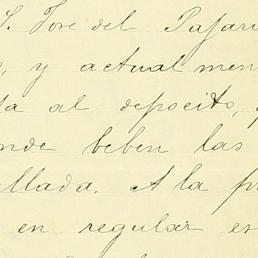 S. Jose del Pajari
, y actual men
la al deposito,
nde beben las
llada. A la p
en regular es